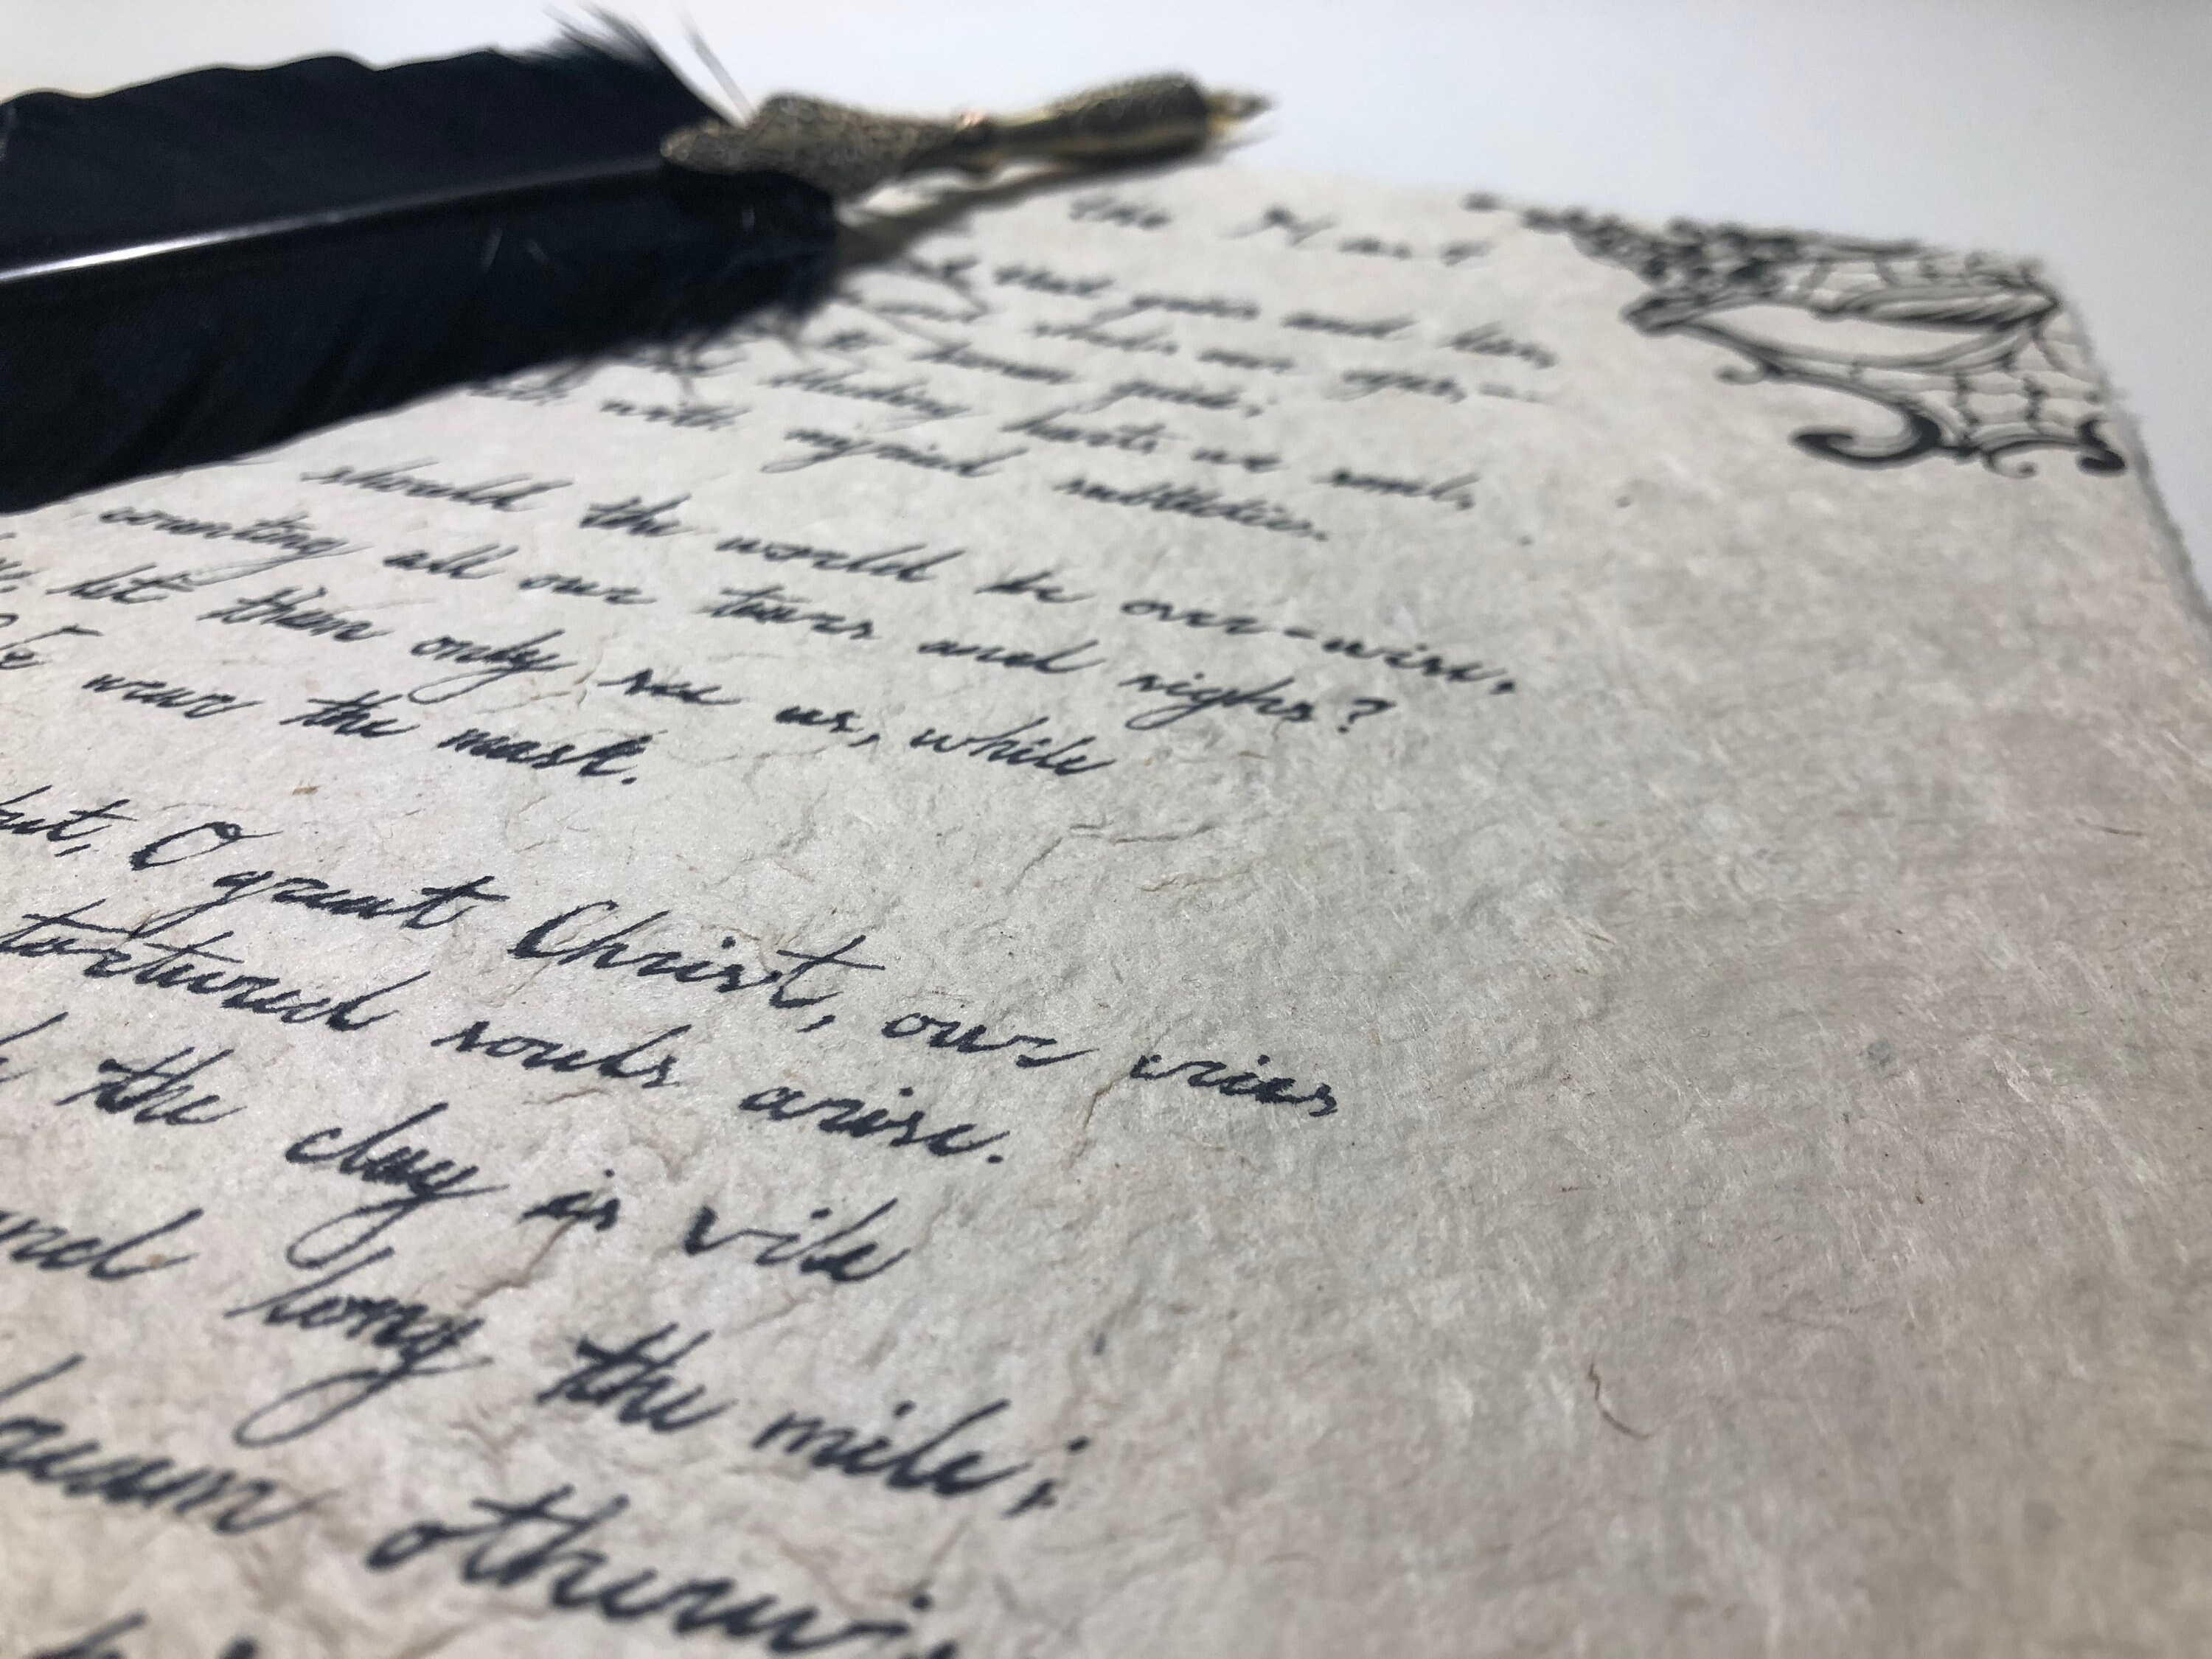 the Mask
that grins and lies,
and shades our eyes,—
to human guile;
bleeding hearts we smile,
with myriad subtleties.
should the world be over-wise,
counting all our tears and sighs?
let them only see us, while
We wear the mask.
but, O great Christ, our cries
tortured souls arise.
the clay is vile
and long the mile;
dream otherwis